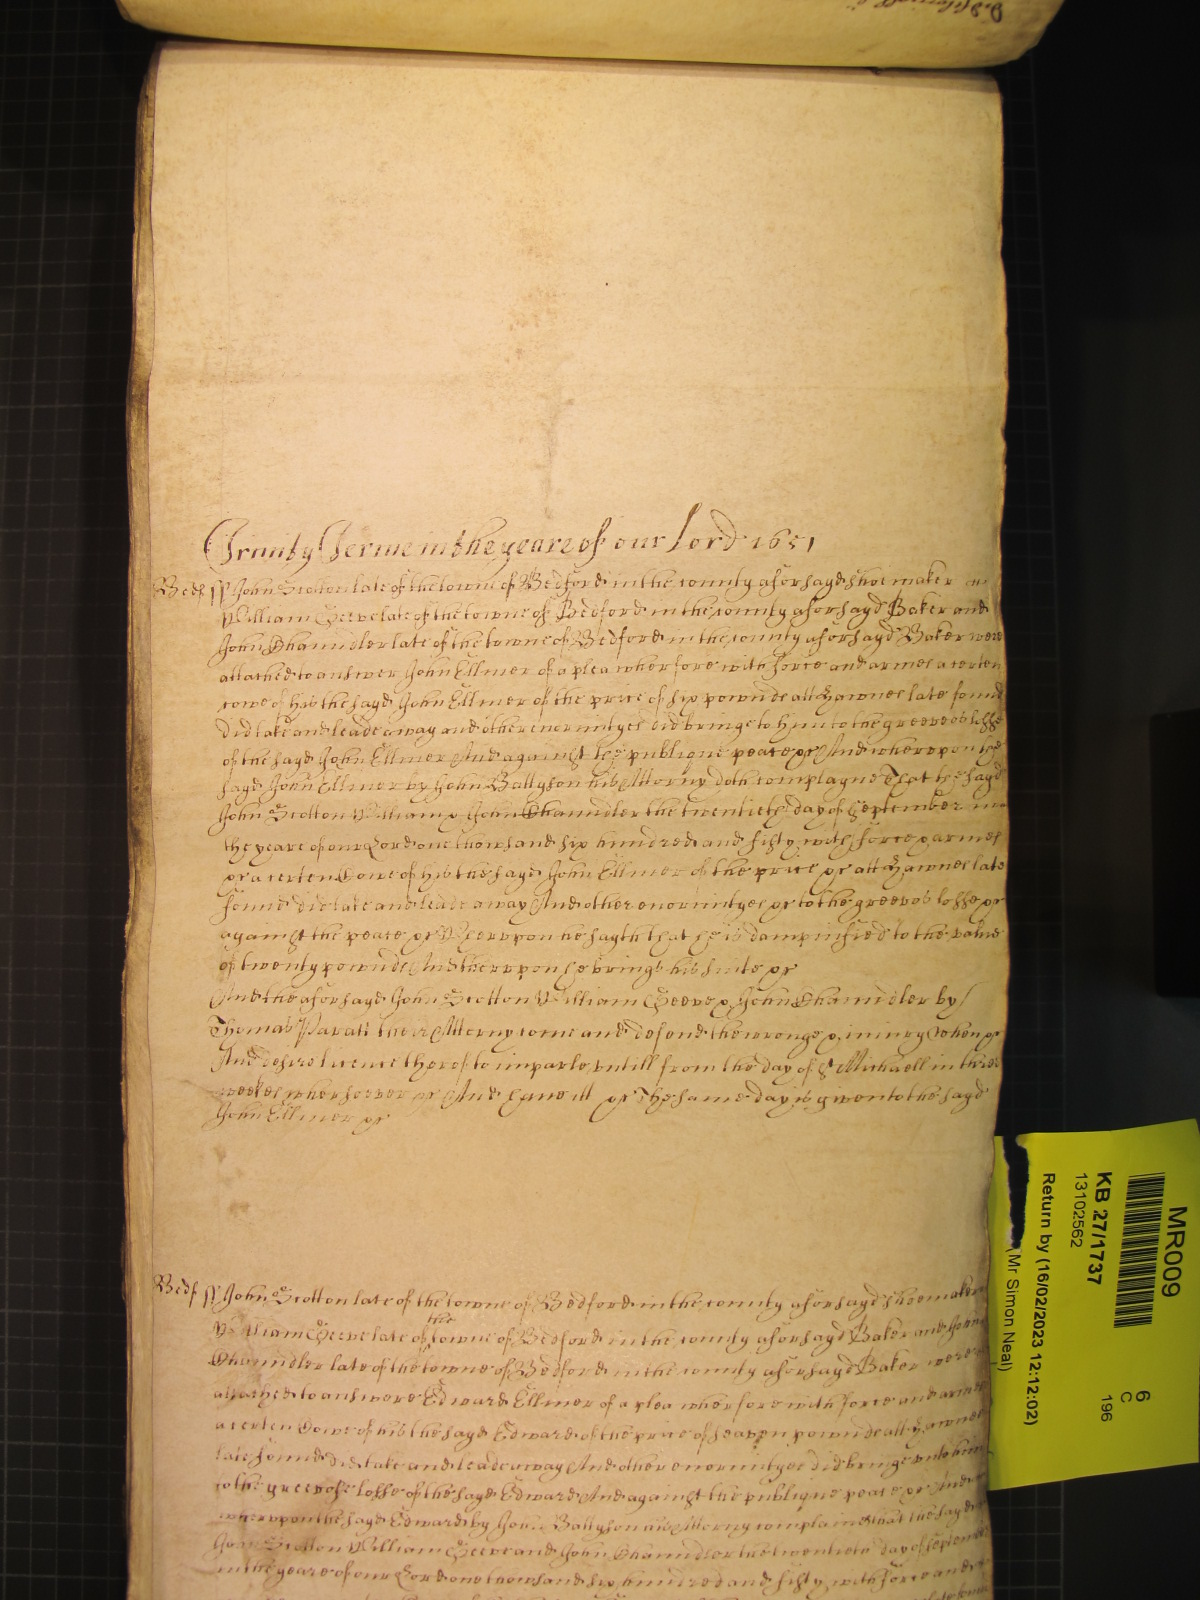 Trinity Terme in the yeare of our Lord 1651
Bedf ss John Scotton late of the towne of Bedford in the county aforsayd shoe maker
William Geeve late of the towne of Bedford in the county aforsayd Baker and
John Channdler late of the towne of Bedford in the county aforsayd Baker were
attached to answer John Ellmer of a plea wherfore with force and armes a certen
cowe of his the sayd John Ellmer of the price of six pownde att Yawnes late found
did take and leade away and other enormityes did bringe to him to the greevos losse
of the sayd John Ellmer And against the publique peace &c And wherupon the
sayd John Ellmer by John Ballyson his Attorny doth complayne That the sayd
John Scotton William & John Channdler the twentieth day of September in
the yeare of our Lord one thowsand six hundred and fifty with force & armes
&c a certen Cowe of his the sayd John Ellmer of the price &c att Yawnes late
found did take and leade away And other enormityes &c to the greevos losse &c
against the peace &c Wherupon he sayth that he is dampnified to the value
of twenty pownde And therupon he brings his suite &c
And the aforsayd John Scotton William Geeve & John Channdler by
Thomas their Attorny come and defend the wronge & iniury when &c
And desire licence therof to imparle untill from the day of St Michaell in three
weekes whersoever &c And have itt &c The same day is given to the sayd
John Ellmer &c
Bedf ss John Scotton late of the towne of Bedford in the county aforsayd shoemaker
William Geeve late of the towne of Bedford in the county aforsayd Baker and John
Channdler late of the towne of Bedford in the county aforsayd Baker were
attached to answere Edward Ellmer of a plea wherfore with force and armes
a certen Cowe of his the sayd Edward of the price of seaven pownde att Yawnes
late found did take and leade away And other enormityes did bringe unto him
to the greevose losse of the sayd Edward And against the publique peace &c And
wherupon the sayd Edward by John Ballyson his Attorny complaines that the sayd
John Scotton William Geeve and John Channdler the twentieth day of September
in the yeare of our Lord one thowsand six hundred and fifty with force and
MR009
KB 27/1737
13102562
Return by (16/02/2023 12:12:02)
(Mr Simon Neal)
6
C
196